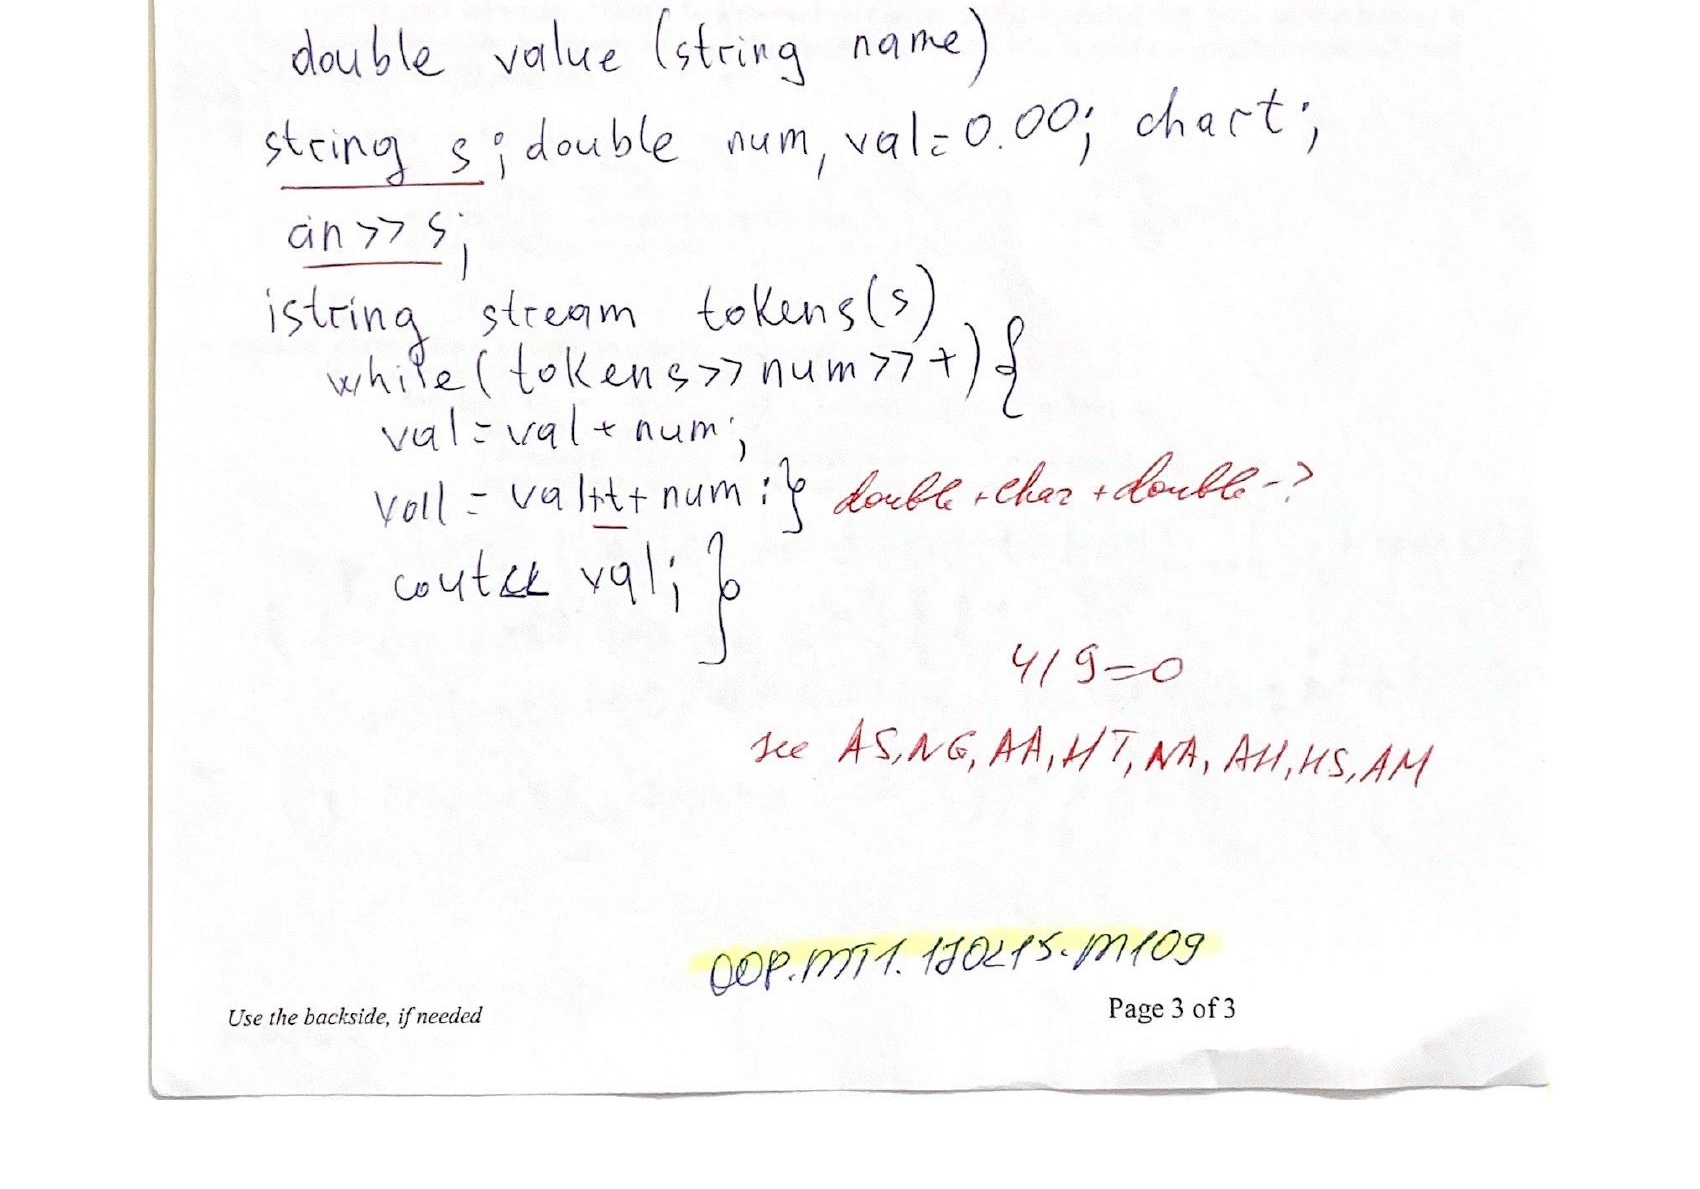 double value (string name)
string s; double num, val=0.00; char t;
cin >> s;
istring stream tokens(s)
while (tokens >> num >> t) {
val = val + num;
val = val+t+ num; } double + char + double - ?
cout << val; }
4/9=0
see AS, NG, AA, HT, NA, AH, HS, AM
OOP.MT1.170215.M109
Use the backside, if needed
Page 3 of 3